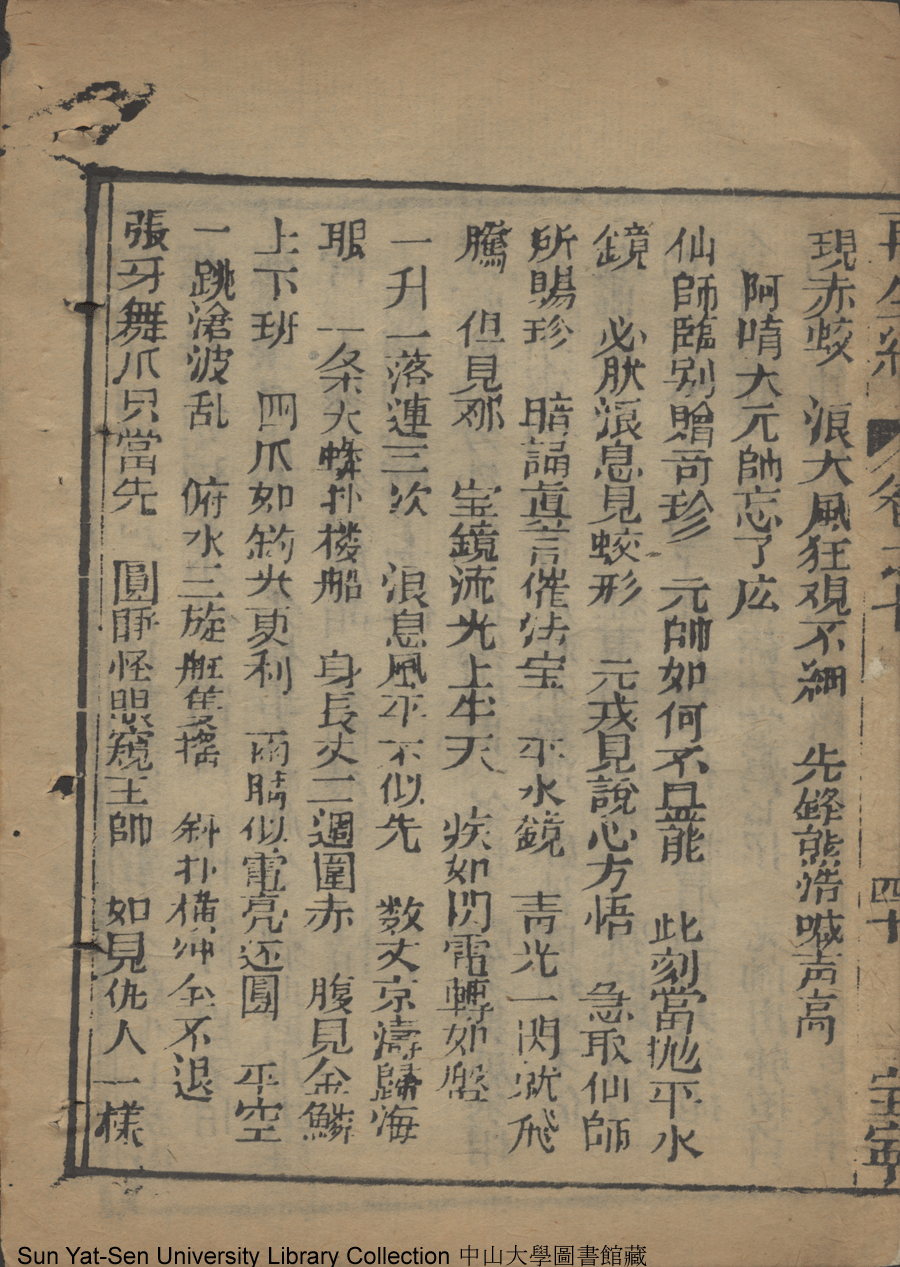 再生緣 卷之十 四十 宝寧
現赤蛟　浪大風狂观不細　先鋒熊浩喊声高
阿唷大元帥忘了広
仙師臨别贈奇珍　元帥如何不且能　此刻當拋平水
鏡　必肰浪息見蛟形　元戎見說心方悟　急取仙師
所賜珍　暗誦真言催法宝　平水鏡　青光一閃就飛
騰　但見那　宝鏡流光上半天　疾如閃電轉如盤
一升一落連三次　浪息風平不似先　数丈京濤歸海
眼　一条大蟒扑楼船　身長丈二週圍赤　腹見金鱗
上下班　四爪如鈎尖更利　兩睛似電亮还圓　平空
一跳滄波乱　俯水三旋艇隻摇　斜扑橫冲全不退
張牙舞爪只當先　圓睜怪眼窺王帥　如見仇人一樣
Sun Yat-Sen University Library Collection 中山大學圖書館藏